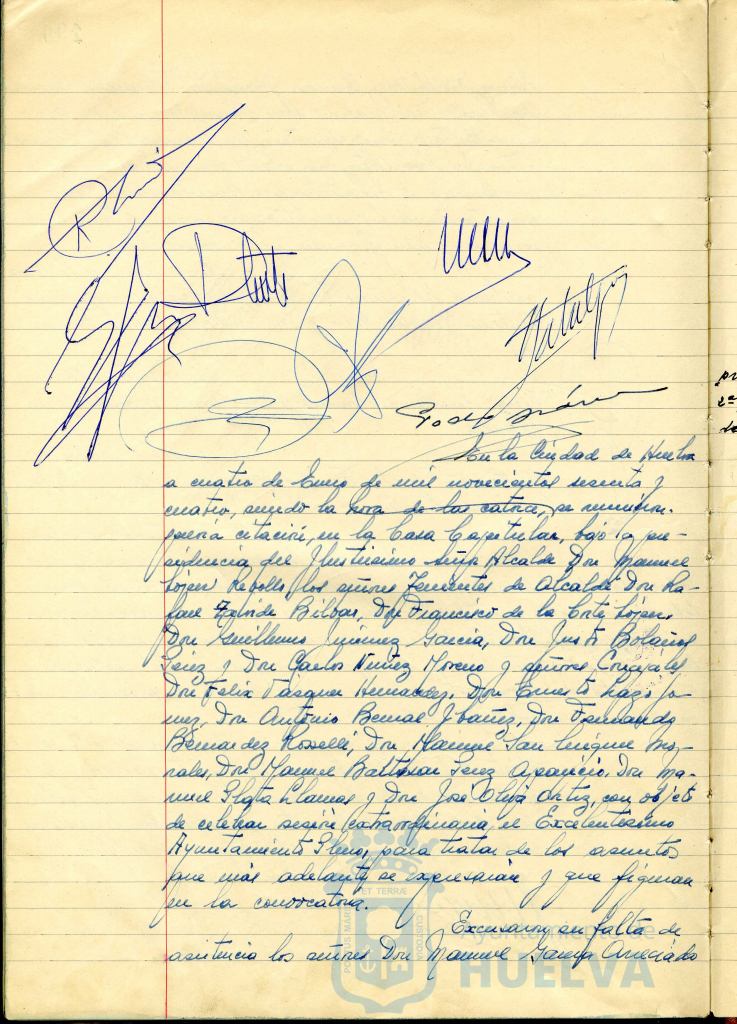 En la Ciudad de Huelva
a cuatro de Enero de mil novecientos sesenta y
cuatro, siendo la hora de las catorce, se reunieron
previa citación, en la Casa Capitular, bajo la pre-
sidencia del Ilustrísimo señor Alcalde Don Manuel
López Rebollo, los señores Tenientes de Alcalde Don Ra-
fael Bilbao, Don Francisco de la Corte López,
Don Guillermo Jiménez García, Don Justo Bolaños
Pérez y Don Carlos Núñez Moreno y señores Concejales
Don Félix Vázquez Hernández, Don Ernesto Lazo
Don Antonio Bernal Ibáñez, Don Fernando
Bernardez Rosselli, Don Manuel San
Don Manuel Baltasar Pérez Aparicio, Don Ma-
nuel Plata Llamas y Don José Oliva Ortiz, con objeto
de celebrar sesión extraordinaria, el Excelentísimo
Ayuntamiento Pleno, para tratar de los asuntos
que más adelante se expresarán y que figuran
en la convocatoria.
Excusaron su falta de
asistencia los señores Don Manuel
Ayuntamiento de
HUELVA